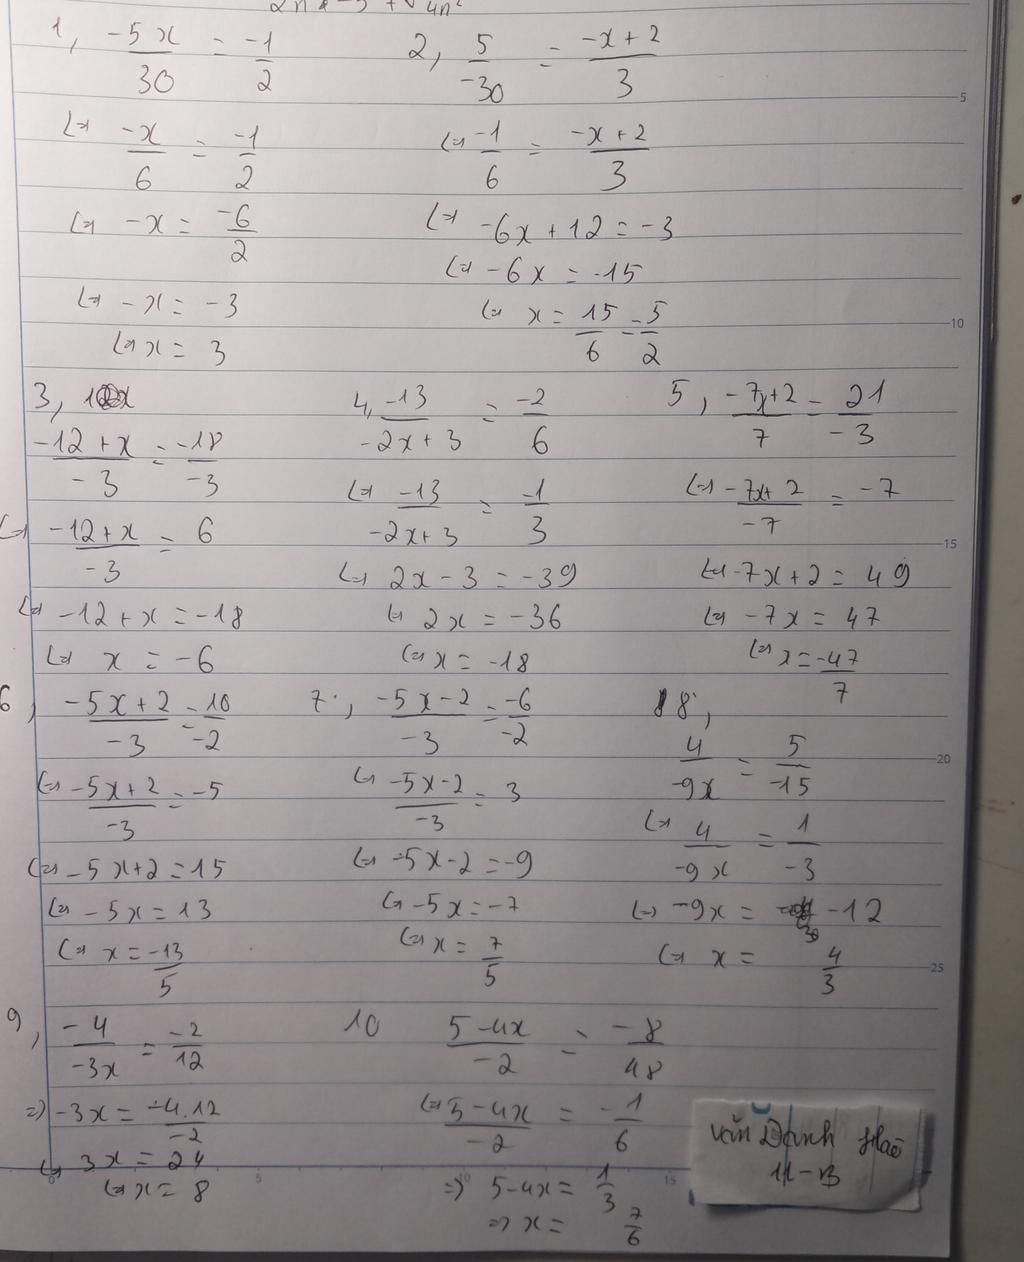 1, -5x/30 = -1/2
⇔ -x/6 = -1/2
⇔ -x = -6/2
⇔ -x = -3
⇔ x = 3
2, 5/-30 = -x+2/3
⇔ -1/6 = -x+2/3
⇔ -6x+12 = -3
⇔ -6x = -15
⇔ x = 15/6 = 5/2
3,
-12+x/-3 = -18/-3
⇔ -12+x/-3 = 6
⇔ -12+x = -18
⇔ x = -6
4, -13/-2x+3 = -2/6
⇔ -13/-2x+3 = -1/3
⇔ 2x-3 = -39
⇔ 2x = -36
⇔ x = -18
5, -7x+2/7 = 21/-3
⇔ -7x+2/-7 = -7
⇔ -7x+2 = 49
⇔ -7x = 47
⇔ x = -47/7
6, -5x+2/-3 = 10/-2
⇔ -5x+2/-3 = -5
⇔ -5x+2 = 15
⇔ -5x = 13
⇔ x = -13/5
7, -5x-2/-3 = -6/-2
⇔ -5x-2/-3 = 3
⇔ -5x-2 = -9
⇔ -5x = -7
⇔ x = 7/5
8,
4/-9x = 5/-15
⇔ 4/-9x = 1/-3
⇔ -9x = -12
⇔ x = 4/3
9, -4/-3x = -2/12
⇒ -3x = -4.12/-2
⇔ 3x = 24
⇔ x = 8
10 5-4x/-2 = -8/48
⇔ 5-4x/-2 = -1/6
⇒ 5-4x = 1/3
⇒ x = 7/6
Văn Danh Hào
11-B
5
10
15
20
25
0
5
10
15